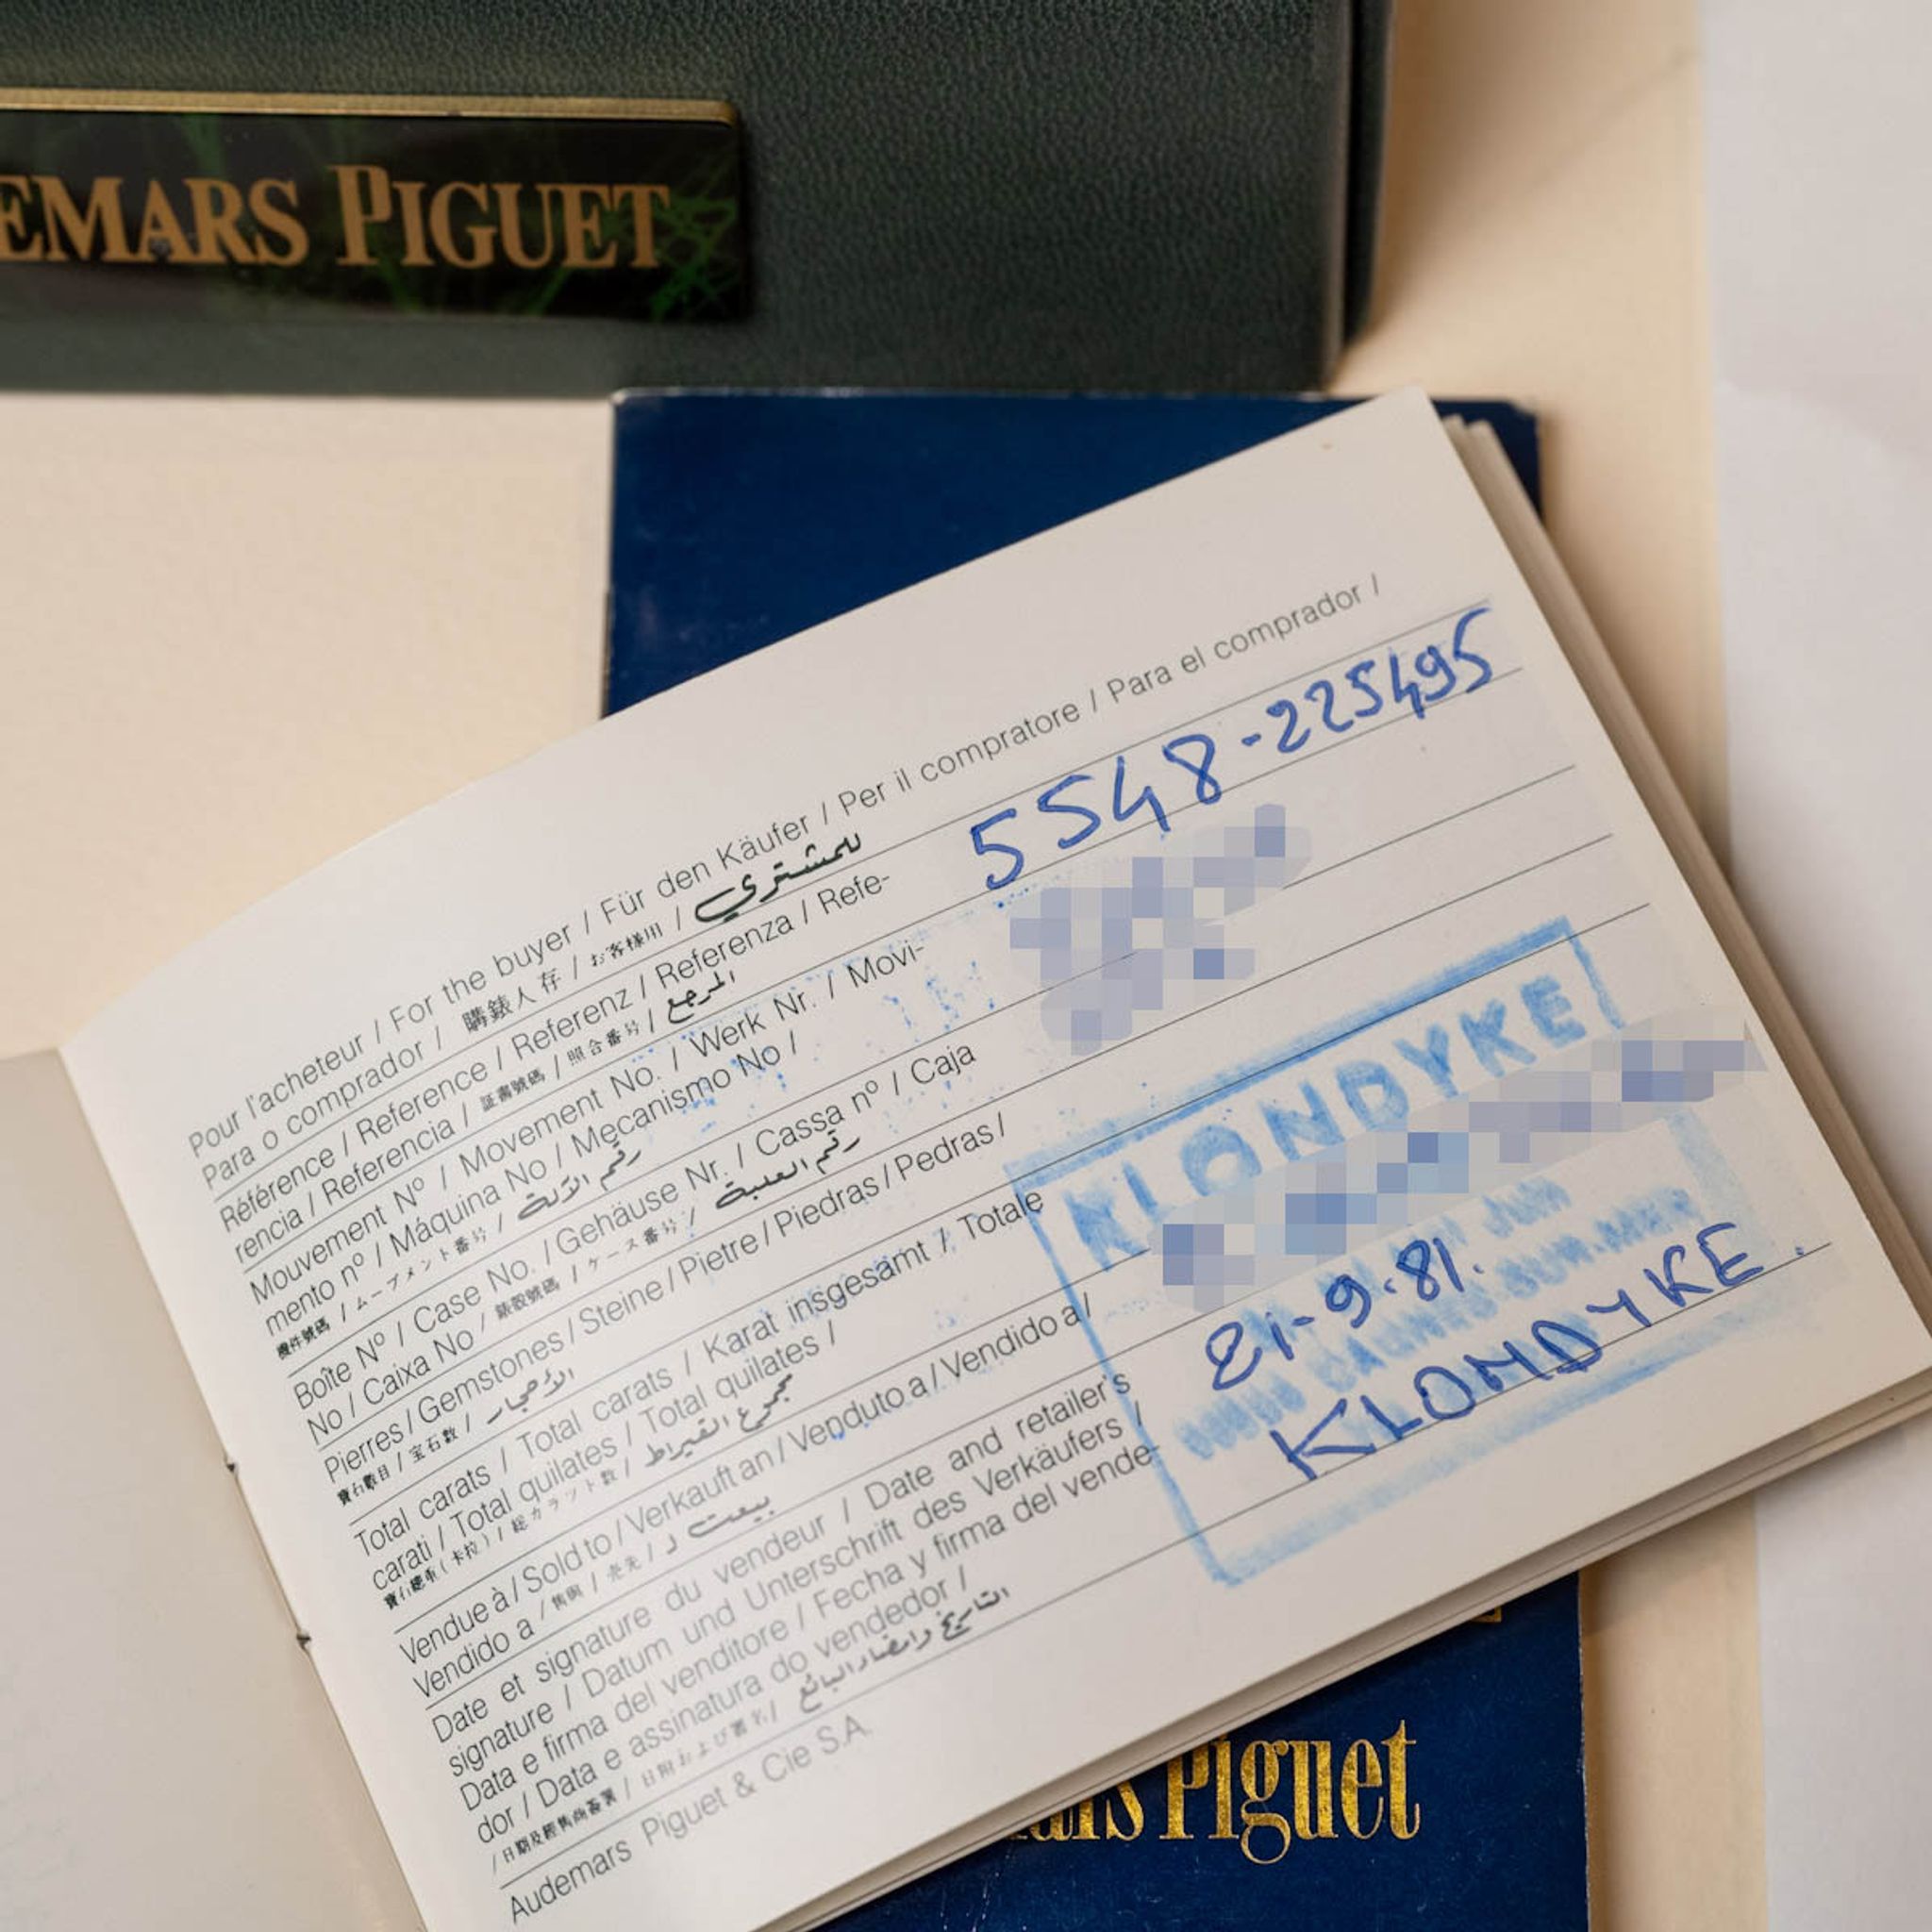 EMARS PIGUET
Pour l'acheteur / For the buyer / Für den Käufer / Per il compratore / Para el comprador /
Para o comprador / 購錶人存 / お客様用 / للمشتري
Référence / Reference / Referenz / Referenza / Refe-
rencia / Referencia / 証書號碼 / 照合番号 / المرجع
5548-225495
Mouvement Nº / Movement No. / Werk Nr. / Movi-
mento nº / Máquina No / Mecanismo No /
機件號碼 / ムーブメント番号 / رقم الآلة
Boîte Nº / Case No. / Gehäuse Nr. / Cassa nº / Caja
No / Caixa No / 錶殼號碼 / ケース番号 / رقم العلبة
Pierres / Gemstones / Steine / Pietre / Piedras / Pedras /
寶石數目 / 宝石数 / الأحجار
Total carats / Total carats / Karat insgesamt / Totale
carati / Total quilates / Total quilates /
寶石總重(卡拉) / 総カラット数 / مجموع القيراط
Vendue à / Sold to / Verkauft an / Venduto a / Vendido a /
Vendido a / 售與 / 売先 / بيعت لـ
Date et signature du vendeur / Date and retailer's
signature / Datum und Unterschrift des Verkäufers /
Data e firma del venditore / Fecha y firma del vende-
dor / Data e assinatura do vendedor /
/ 日期及經售商簽署 / 日附および署名 / التاريخ وإمضاء البائع
KLONDYKE
JUIN
SUR-MER
21-9-81.
KLONDYKE
Audemars Piguet & Cie S.A.
ars Piguet